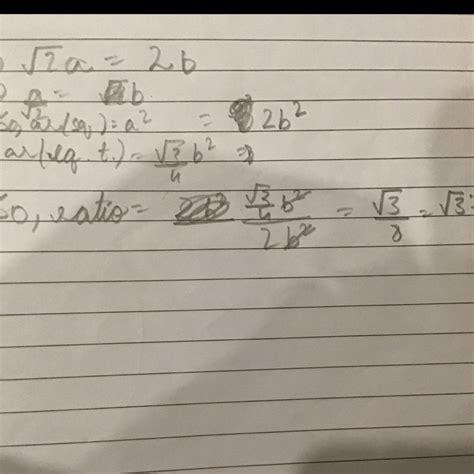 √2a = 2b
a/√2 = b
So, ar(sq.) = a² = 2b²
ar(eq. t.) = √3/4 b² ⇒
So, ratio = (√3/4 b²)/(2b²) = √3/8 = √3: